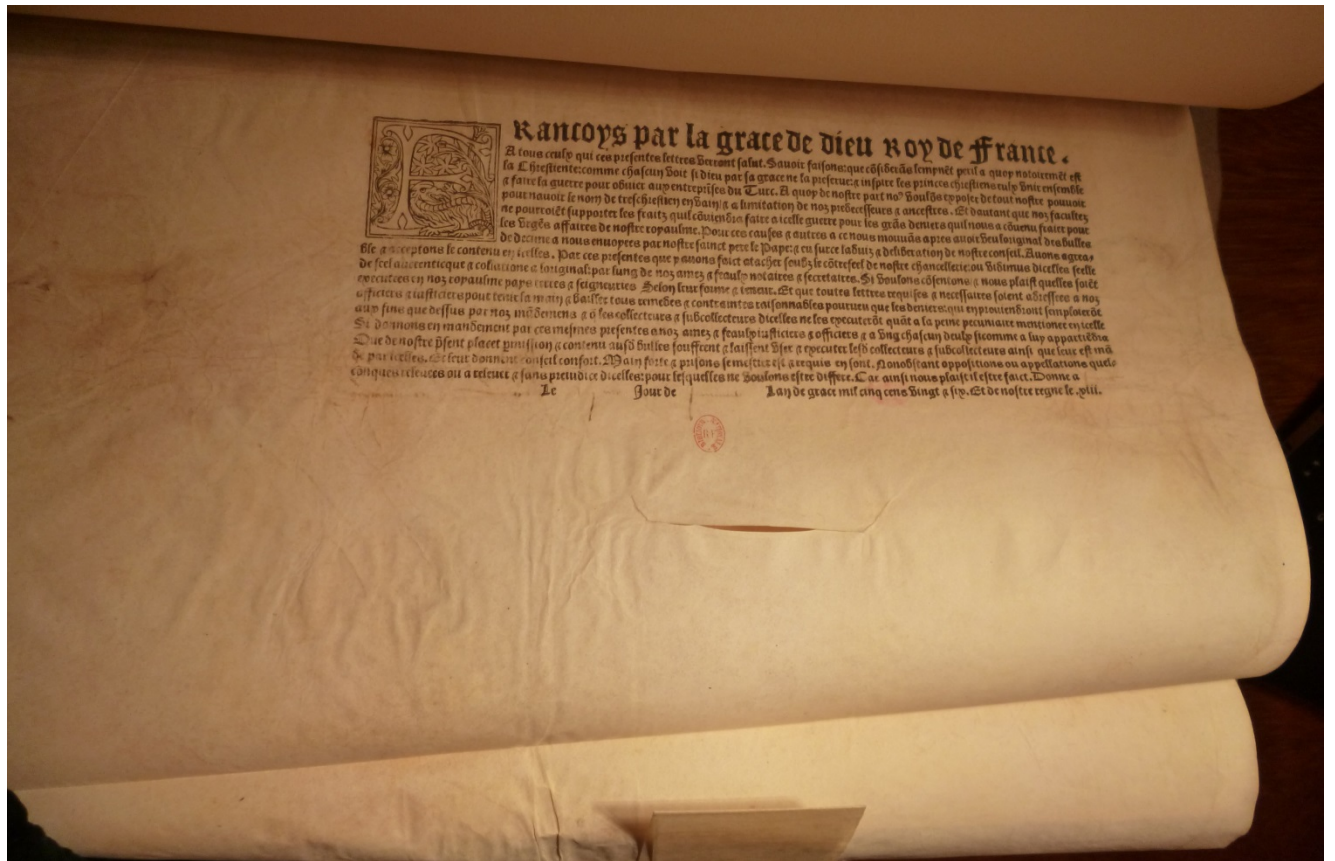 FRancoys par la grace de dieu Roy de France.
A tous ceulx qui ces presentes lettres verront salut. Sauoir faisons: que cõsiderãs leminẽt peril a quoy notoiremẽt est
la Chrestiente: comme chascun voit si dieu par sa grace ne la preserue: ⁊ inspire les princes chrestiens eulx vnir ensemble
⁊ faire la guerre pour obuier aux entreprises du Turc. A quoy de nostre part noꝰ voulõs exposer de tout nostre pouuoir
pour nauoir le nom de treschrestien en vain: ⁊ a limitation de noz predecesseurs ⁊ ancestres. Et dautant que noz facultez
ne pourroiẽt supporter les fraitz quil cõuiendra faire a icelle guerre pour les grãs deniers quil nous a cõuenu fraier pour
les vrgẽs affaires de nostre royaulme. Pour ces causes ⁊ autres a ce nous mouuãs apres auoir veu loriginal des bulles
de decime a nous enuoyees par nostre sainct pere le Pape: ⁊ eu sur ce laduis ⁊ deliberation de nostre conseil. Auons agrea-
ble ⁊ acceptons le contenu en icelles. Par ces presentes que y auons faict atacher soubz le cõtreseel de nostre chancellerie: ou vidimus dicelles seelle
de seel autenticque ⁊ collatione a loriginal: par lung de noz amez ⁊ feaulx notaires ⁊ secretaires. Si voulons cõsentons ⁊ nous plaist quelles soiẽt
executees en noz royaulme pays terres ⁊ seigneuries Selon leur forme ⁊ teneur. Et que toutes lettres requises ⁊ necessaires soient adressees a noz
officiers ⁊ iusticiers pour tenir la main ⁊ bailler tous remedes ⁊ contraintes raisonnables pourueu que les deniers: qui en prouiendront semploierõt
aux fins que dessus par noz mãdemens ⁊ q̃ les collecteurs ⁊ subcollecteurs dicelles ne les executerõt quãt a la peine pecuniaire mentionee en icelle
Si donnons en mandement par ces mesmes presentes a noz amez ⁊ feaulx iusticiers ⁊ officiers ⁊ a vng chascun deulx sicomme a luy appartiẽdra
Que de nostre p̃sent placet p̃mission ⁊ contenu ausd bulles souffrent ⁊ laissent vser ⁊ executer lesd collecteurs ⁊ subcollecteurs ainsi que leur est mã
de par icelles. Et leur donnent conseil confort. Main forte ⁊ prisons se mestier est ⁊ requis en sont. Nonobstant oppositions ou appellations quels
conques releuees ou a releuer ⁊ sans preiudice dicelles: pour lesquelles ne voulons estre differe. Car ainsi nous plaist il estre faict. Donne a
Le Jour de Lan de grace mil cinq cens vingt ⁊ six. Et de nostre regne le .xiii.